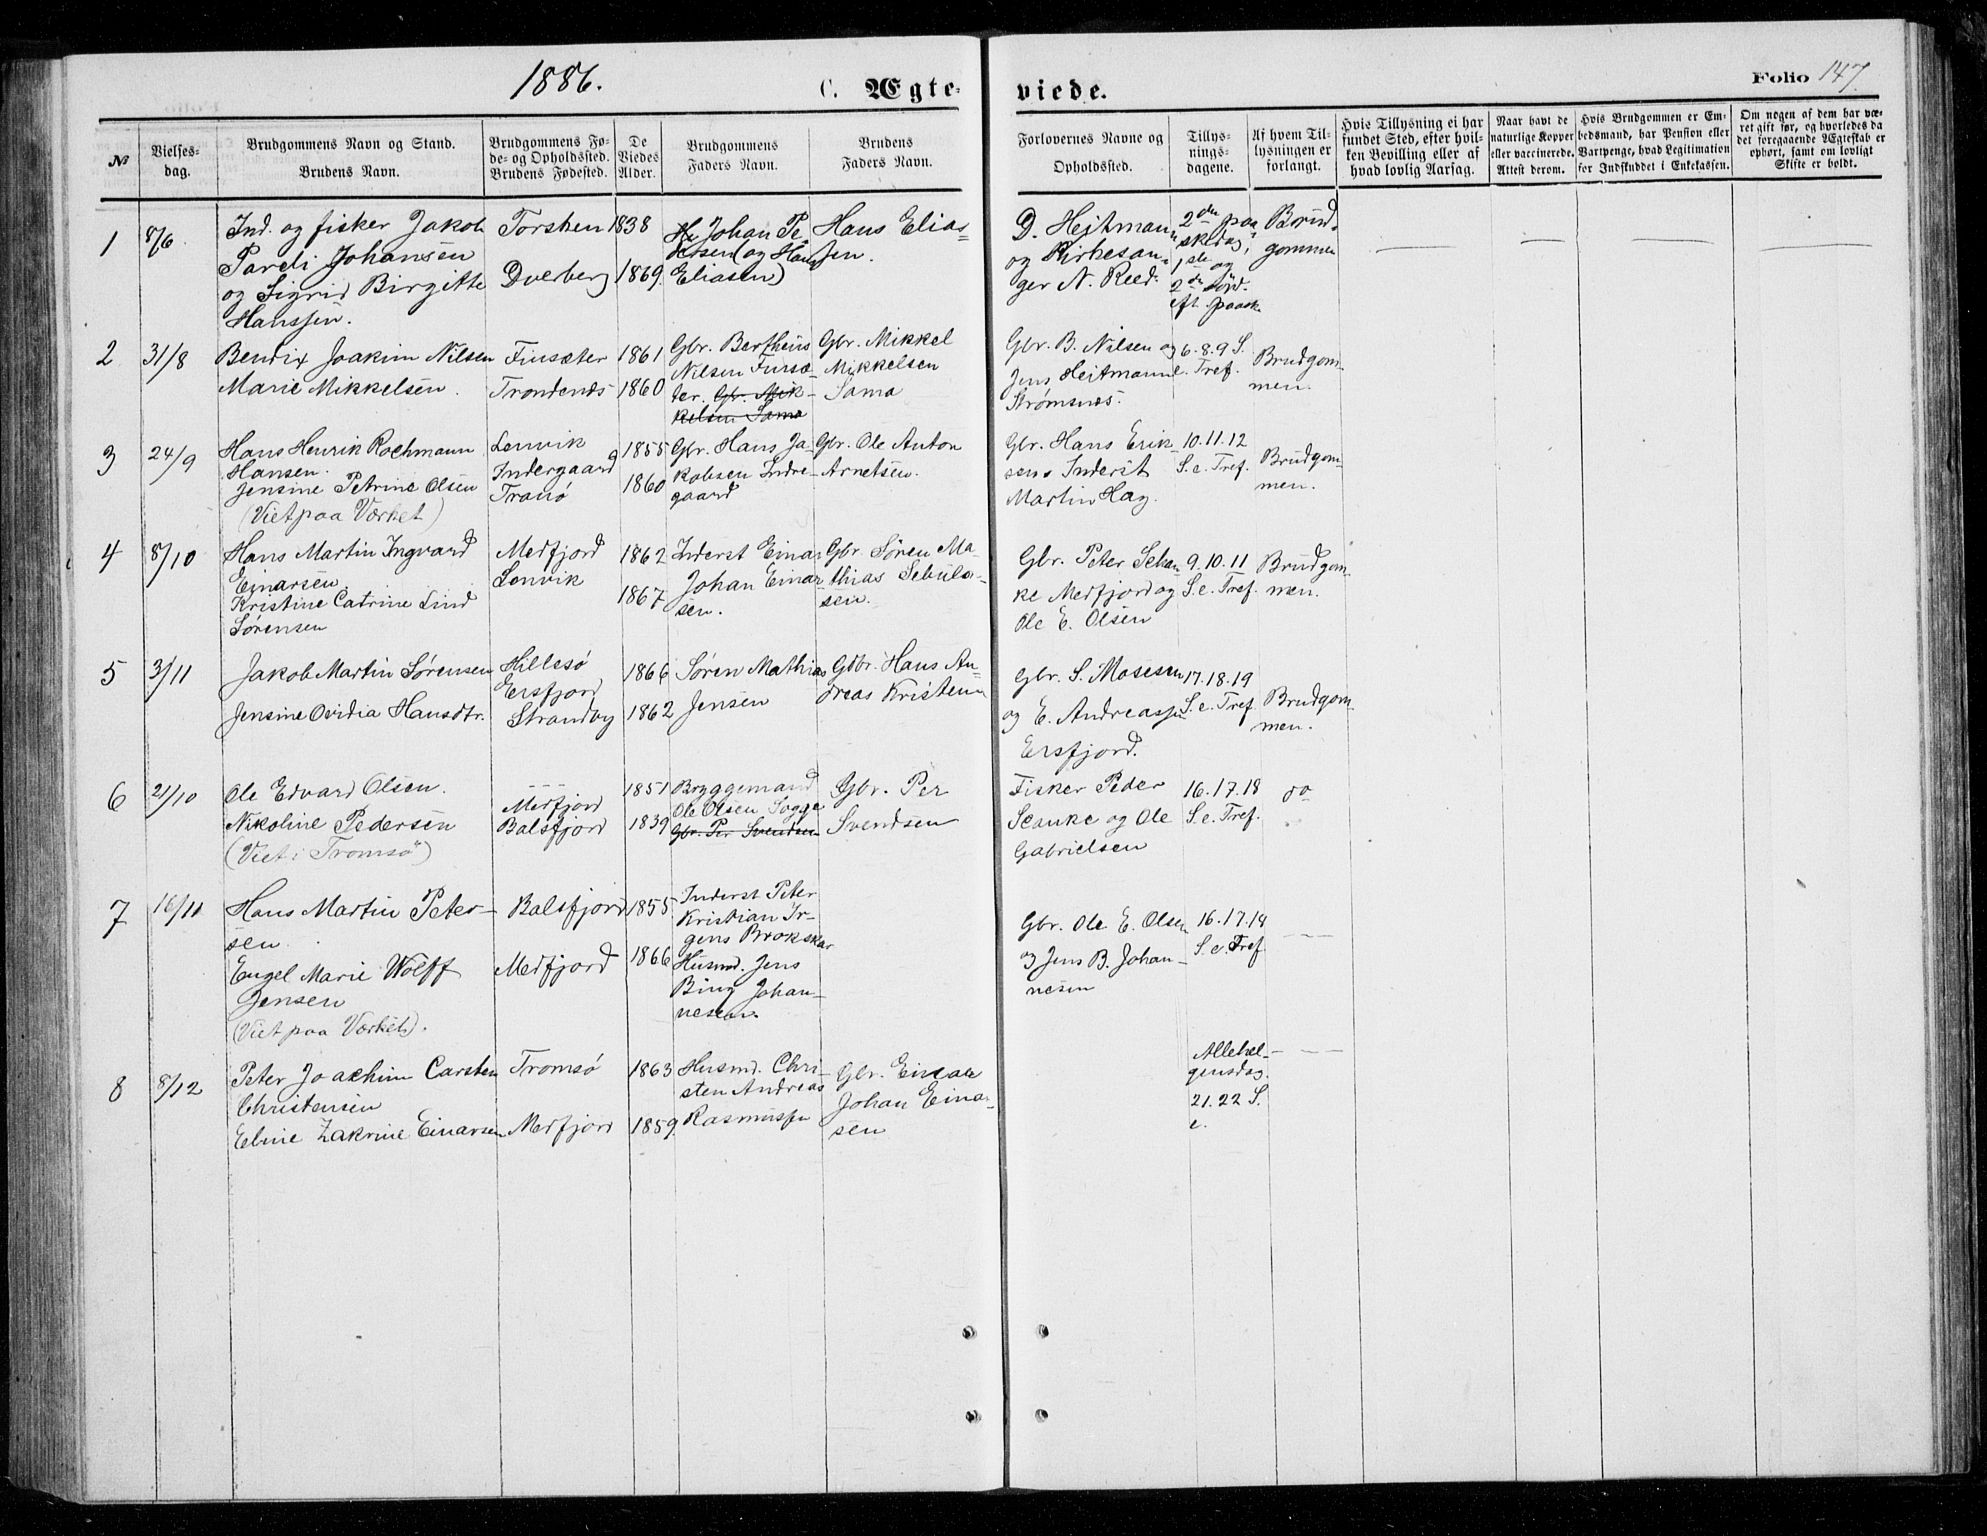 1886.
C. Ægte-
viede.
Folio 147
№
Vielses-
dag.
Brudgommens Navn og Stand.
Brudens Navn.
Brudgommens Fø-
de- og Opholdssted.
Brudens Fødested.
De
Viedes
Alder.
Brudgommens
Faders Navn.
Brudens
Faders Navn.
Forlovernes Navne og
Opholdssted.
Tillys-
nings-
dagene.
Af hvem Til-
lysningen er
forlangt.
Hvis Tillysning ei har
fundet Sted, efter hvil-
ken Bevilling eller af
hvad lovlig Aarsag.
Naar havt de
naturlige Kopper
eller vaccinerede.
Attest derom.
Hvis Brudgommen er Em-
bedsmand, har Pension eller
Vartpenge, hvad Legitimation
for Indskuddet i Enkekassen.
Om nogen af dem har væ-
ret gift før, og hvorledes da
det foregaaende Ægteskab er
ophørt, samt om lovligt
Skifte er holdt.
1
8/6.
Ind. og fisker Jakob
Pareli Johansen
og Sigrid Birgitte
Hanssen.
Torsken
Dverberg
1838
1869.
Johan Pe-
(og Hans
Eliasen)
Hans Elias-
sen.
D. Hejtmann
og Kirkesan-
ger N. Reed.
2den paa
skedag,
1ste og
2den sønd.
eft. paask
Brud-
gommen
2
31/8
Bendix Joakim Nilsen
Marie Mikkelsen.
Finsæter
Trondenæs
1861
1860
Gbr. Bertheus
Nilsen Fursæ-
ter. Gbr. Mik-
kelsen Sama
Gbr. Mikkel
Mikkelsen
Sama
Gbr. B. Nilsen og
Jens Hejtmann
Strømsnæs.
6. 8. 9 S.
e. Tref.
Brudgom-
men.
3
24/9
Hans Henrik Rochmann
Hansen.
Jensine Petrine Olsen
(Viet paa Værket)
Lenvik
Indergaard
Tranø
1855
1860
Gbr. Hans Ja-
kobsen Indre-
gaard
Gbr. Ole Anton
Arnetsen.
Gbr. Hans Erik-
sen Inderst
Martin Hag.
10. 11. 12
S. e. Tref.
Brudgom-
men.
4
8/10
Hans Martin Ingvard
Einarsen
Kristine Catrine Lind
Sørensen
Medfjord
Lenvik
1862
1867
Inderst Einar
Johan Einar-
sen.
Gbr. Søren Ma-
thias Sebula-
sen.
Gbr. Peter Schan-
ke Medfjord og
Ole E. Olsen
9. 10. 11
S. e. Tref.
Brudgom-
men.
5
3/11
Jakob Martin Sørensen
Jensine Ovidia Hansdtr.
Hillesø
Ersfjord
Strandby
1866
1862
Søren Mathias
Jensen
Gdbr. Hans An-
dreas Kristensen
Gbr. S. Mosesen
og E. Andreassen
Ersfjord.
17. 18. 19
S. e. Tref
Brudgom-
men.
6
21/10
Ole Edvard Olsen.
Nikoline Pedersen
(Viet i Tromsø)
- - -
Medfjord
Balsfjord
1851
1839
Bryggemand
Ole Olsen Sogge
Gbr. Per Svendsen
Gbr. Per
Svendsen
Fisker Peder
Scanke og Ole
Gabrielsen
16. 17. 18
S. e. Tref.
do
7
16/11
Hans Martin Peter-
sen.
Engel Marie Wolff
Jensen
(Viet paa Værket).
Balsfjord
Medfjord
1855
1866
Inderst Peter
Kristian Ir-
gens Brokskar
Husmd. Jens
Bing Johan-
nesen
Gbr. Ole E. Olsen
og Jens B. Johan-
nesen
16. 17. 18
S. e. Tref
8
8/12
Peter Joachim Carsten
Christensen
Eline Zakrine Einarsen
Tromsø
Medfjord
1863
1859.
Husmd. Chri-
sten Andreas
Rasmussen
Gbr. Einar
Johan Einar-
sen
Allehel-
gensdag.
21. 22 S.
e.